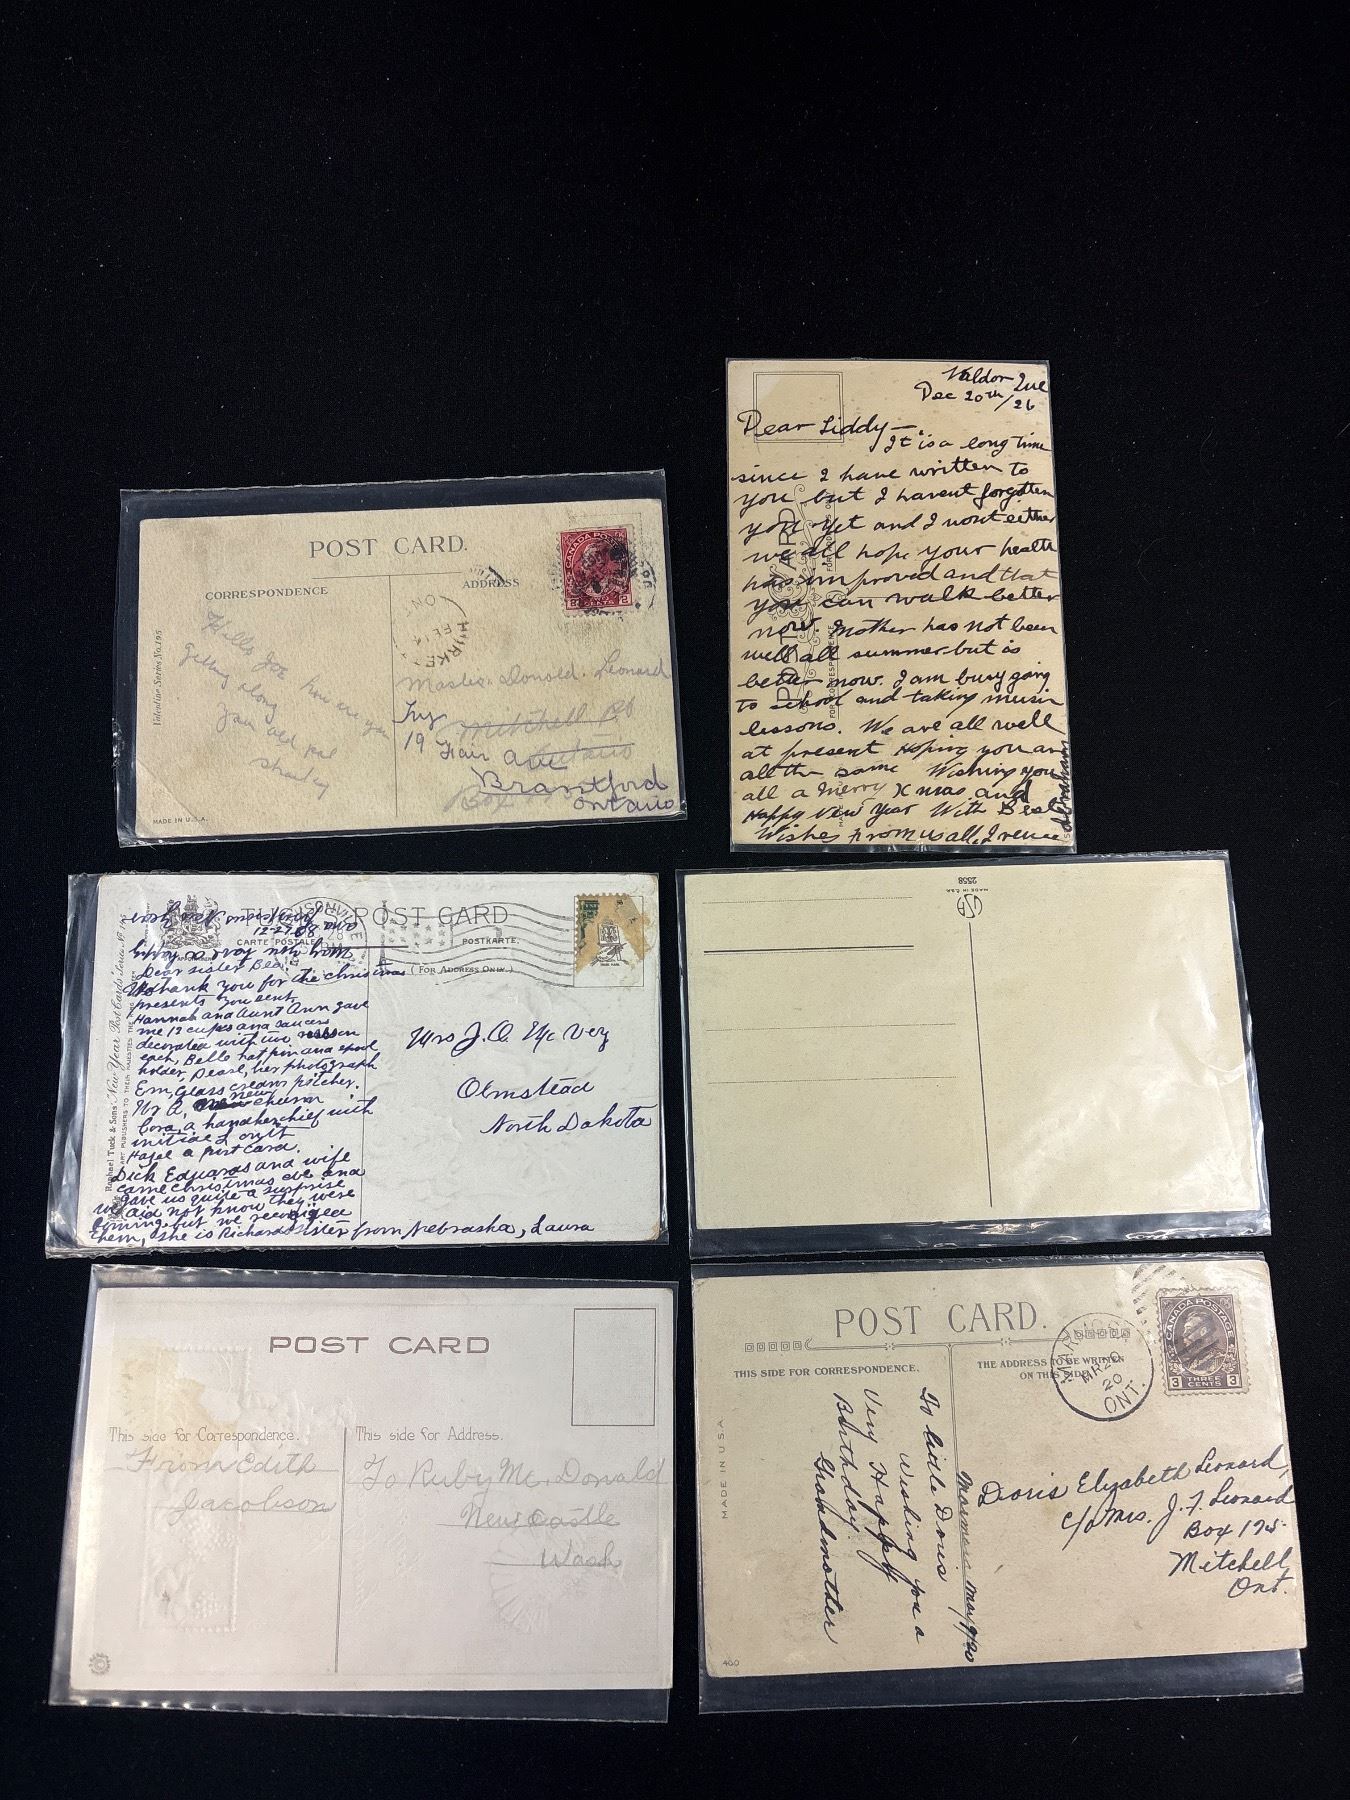 POST CARD.
CORRESPONDENCE
ADDRESS
CANADA POSTAGE
2 CENTS 2
Valentine Series No. 195
MADE IN U.S.A.
Hello
how are you
getting along
you old pal
Stanley
Master Donald Leonard
Mitchell
Ontario
Try
19 Fair Ave
Brantford
Ontario
Box
Valdor Que
Dec 20th/26
Dear Liddy—
It is a long time
since I have written to
you but I havent forgotten
you yet and I wont either
we all hope your health
has improved and that
you can walk better
now. Mother has not been
well all summer but is
better now. I am busy going
to school and taking music
lessons. We are all well
at present Hoping you are
all the same Wishing you
all a Merry Xmas and
Happy New Year With Best
Wishes from us all, Irene
Abraham
POST CARD
FOR CORRESPONDENCE
POST CARD
CARTE POSTALE
POSTKARTE.
(FOR ADDRESS ONLY.)
Raphael Tuck & Sons' New Year Post Cards Series No.
ART PUBLISHERS TO THEIR MAJESTIES THE KING
12-27-08
Dear sister Bea:
thank you for the christmas
presents you sent.
Hannah and Aunt Ann gave
me 12 cups and saucers
decorated with
each, Belle hat pin and spool
holder, Pearl, her photograph
Em, Glass cream pitcher.
Mr A, new churn
Cora, a handkerchief with
initial L on it
Hazel a post card.
Dick Edwards and wife
came Christmas eve and
gave us quite a surprise
we did not know they were
coming but we recognized
them, she is Richards sister from Nebraska, Laura
Mrs J. O. McVey
Olmstead
North Dakota
2558
MADE IN U.S.A.
POST CARD
This side for Correspondence.
This side for Address.
From Edith
Jacobson
To Ruby Mc. Donald
Newcastle
Wash
POST CARD.
THIS SIDE FOR CORRESPONDENCE.
THE ADDRESS TO BE WRITTEN
ON THIS SIDE.
MR 20
20
ONT.
CANADA POSTAGE
3 THREE CENTS 3
MADE IN U.S.A.
460
To little Doris
Wishing you a
Very Happy
Birthday.
Grandmother
Doris Elizabeth Leonard,
c/o Mrs. J. F. Leonard
Box 175
Mitchell,
Ont.